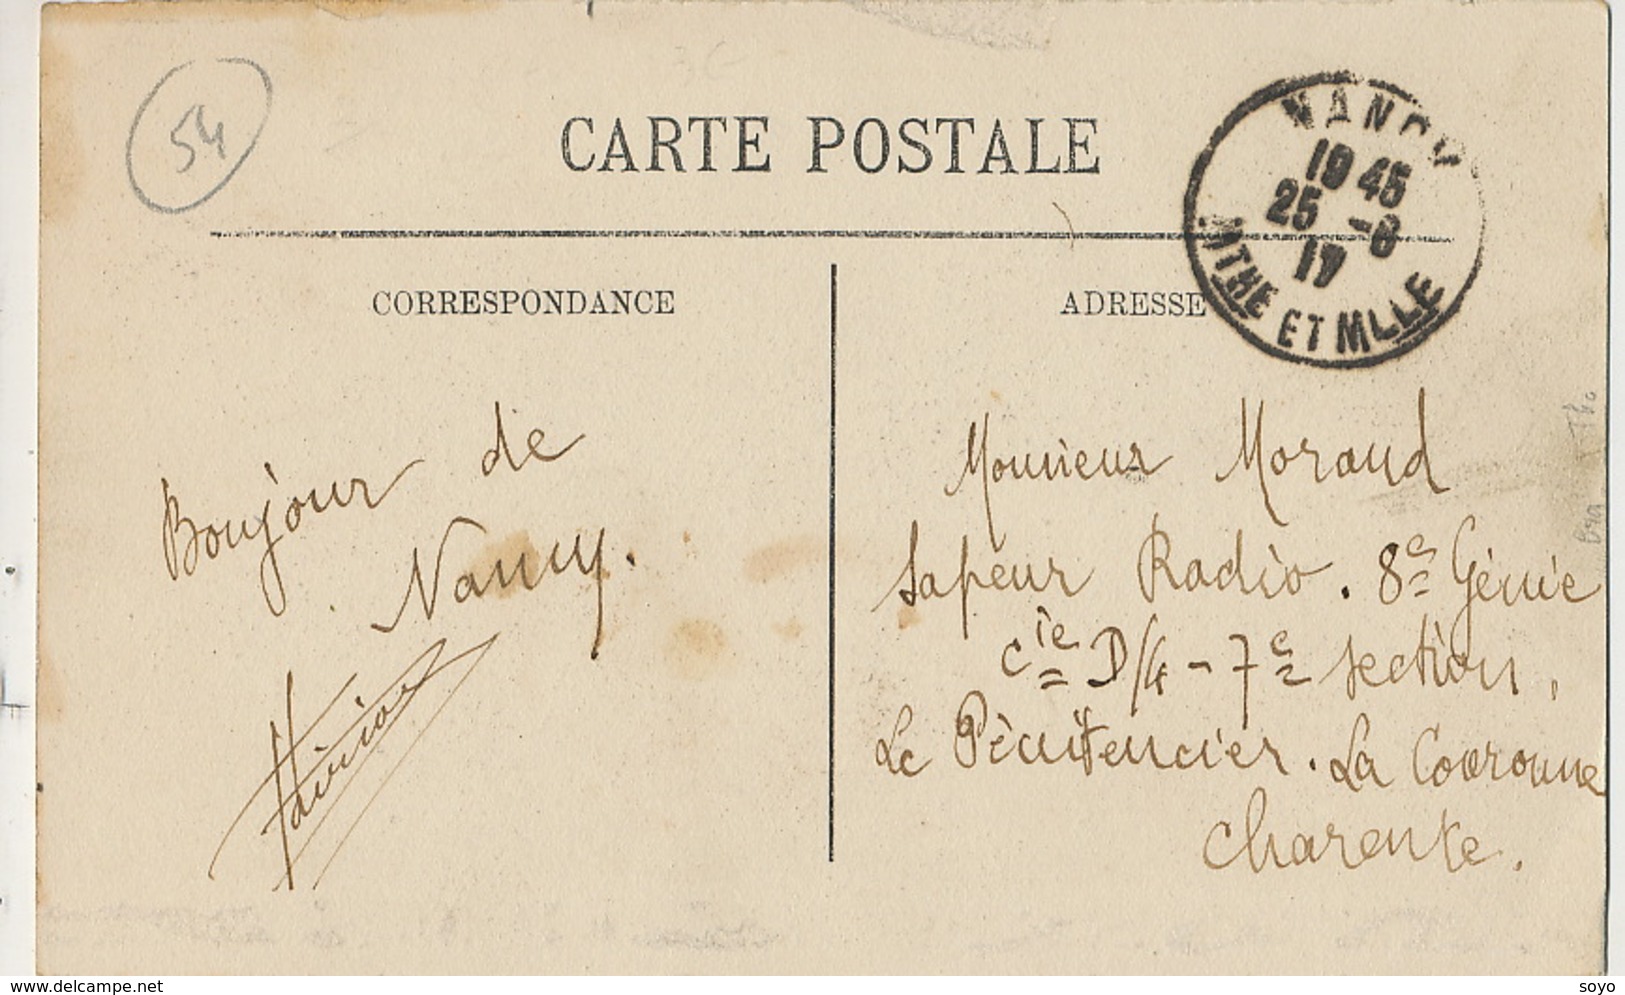 54
CARTE POSTALE
NANCY
19 45
25 -8
17
MTHE ET MLLE
CORRESPONDANCE
ADRESSE
Bonjour de
Nancy.
Monsieur Morand
Sapeur Radio. 8e Génie
Cie D/4 - 7e section,
Le Pénitencier. La Couronne
Charente.
www.delcampe.net
soyo